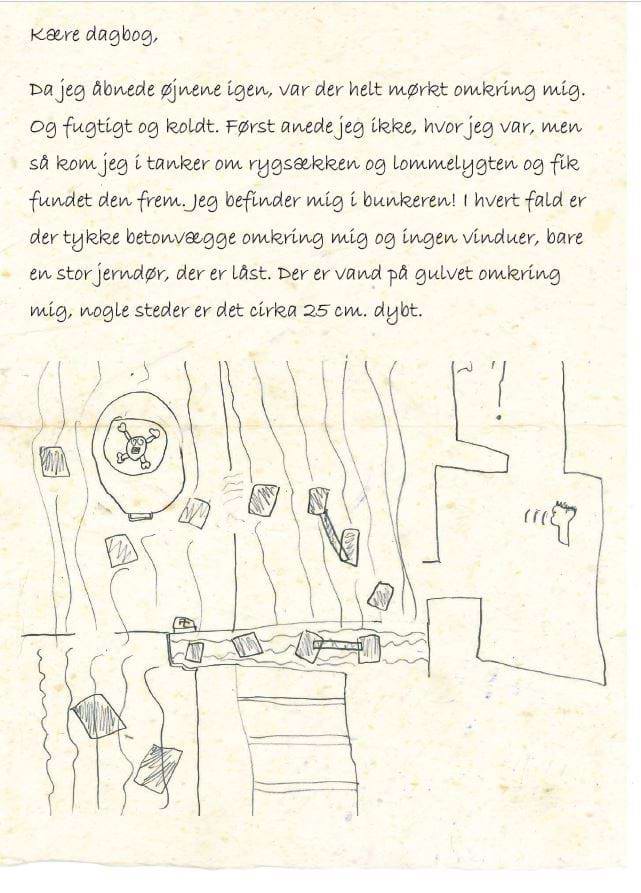 Kære dagbog,
Da jeg åbnede øjnene igen, var der helt mørkt omkring mig.
Og fugtigt og koldt. Først anede jeg ikke, hvor jeg var, men
så kom jeg i tanker om rygsækken og lommelygten og fik
fundet den frem. Jeg befinder mig i bunkeren! I hvert fald er
der tykke betonvægge omkring mig og ingen vinduer, bare
en stor jerndør, der er låst. Der er vand på gulvet omkring
mig, nogle steder er det cirka 25 cm. dybt.